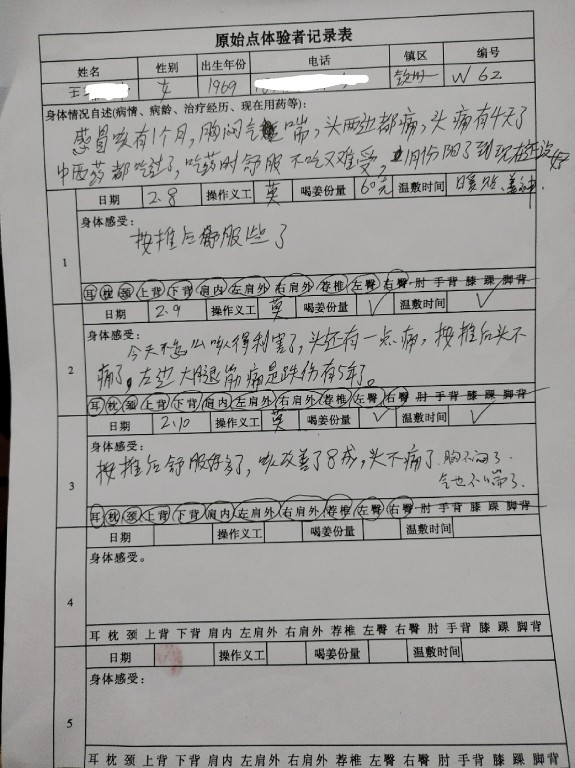 原始点体验者记录表
姓名 性别 出生年份 电话 镇区 编号
王 女 1969 W 62
身体情况自述(病情、病龄、治疗经历、现在用药等):
感冒咳有1个月,胸闷气喘,头两边都痛,头痛有4天了
中西药都吃过了,吃药时舒服不吃又难受,1月份阳了到现在还没好
日期 2.8 操作义工 莫 喝姜份量 60元 温敷时间
身体感受:
按推后舒服些了
1
耳 枕 颈 上背 下背 肩内 左肩外 右肩外 荐椎 左臀 右臀 肘 手背 膝 踝 脚背
日期 2.9 操作义工 莫 喝姜份量 ✓ 温敷时间 ✓
身体感受:
今天不怎么咳得利害了,头还有一点痛,按推后头不
2
痛了,左边大腿筋痛是跌伤有5年了。
耳 枕 颈 上背 下背 肩内 左肩外 右肩外 荐椎 左臀 右臀 肘 手背 膝 踝 脚背
日期 2.10 操作义工 莫 喝姜份量 ✓ 温敷时间 ✓
身体感受:
按推后舒服好多了,咳改善了8成,头不痛了.胸不闷了.
3
气也不喘了.
耳 枕 颈 上背 下背 肩内 左肩外 右肩外 荐椎 左臀 右臀 肘 手背 膝 踝 脚背
日期 操作义工 喝姜份量 温敷时间
身体感受。
4
耳 枕 颈 上背 下背 肩内 左肩外 右肩外 荐椎 左臀 右臀 肘 手背 膝 踝 脚背
日期 操作义工 喝姜份量 温敷时间
身体感受:
5
耳 枕 颈 上背 下背 肩内 左肩外 右肩外 荐椎 左臀 右臀 肘 手背 膝 踝 脚背